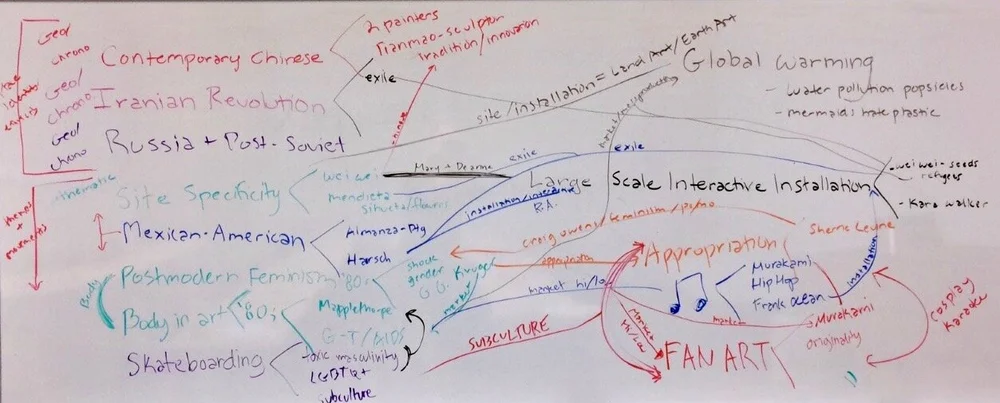 Geo/
chrono
Geo/
chrono
Geo/
chrono
thematic
themes +
movements
Contemporary Chinese
2 painters
Tianmao-sculptor
Tradition/innovation
exile
Iranian Revolution
Russia + Post-Soviet
chinese
site/installation = Land Art/Earth Art
Global Warming
- water pollution popsicles
- mermaids hate plastic
Site Specificity
weiwei
mendieta
silueta/flowers
Mary + Deanne
exile
exile
Large Scale Interactive Installation
- weiwei-seeds
refugees
- Kara Walker
Mexican-American
Almanza-Ptg
Harsch
installation/interactive
R.A.
craig owens/feminism/pomo
Sherrie Levine
Body
Postmodern Feminism '80s
shock
gender
G.G.
Kruger
appropriation
Appropriation
market
market hi/lo
Murakami
Hip Hop
Frank Ocean
installation
Body in art '80s
Mapplethorpe
G-T/AIDS
market
Murakami
originality
Cosplay
Karaoke
Skateboarding
toxic masculinity
LGBTQ+
subculture
SUBCULTURE
Market
hi/low
FAN ART